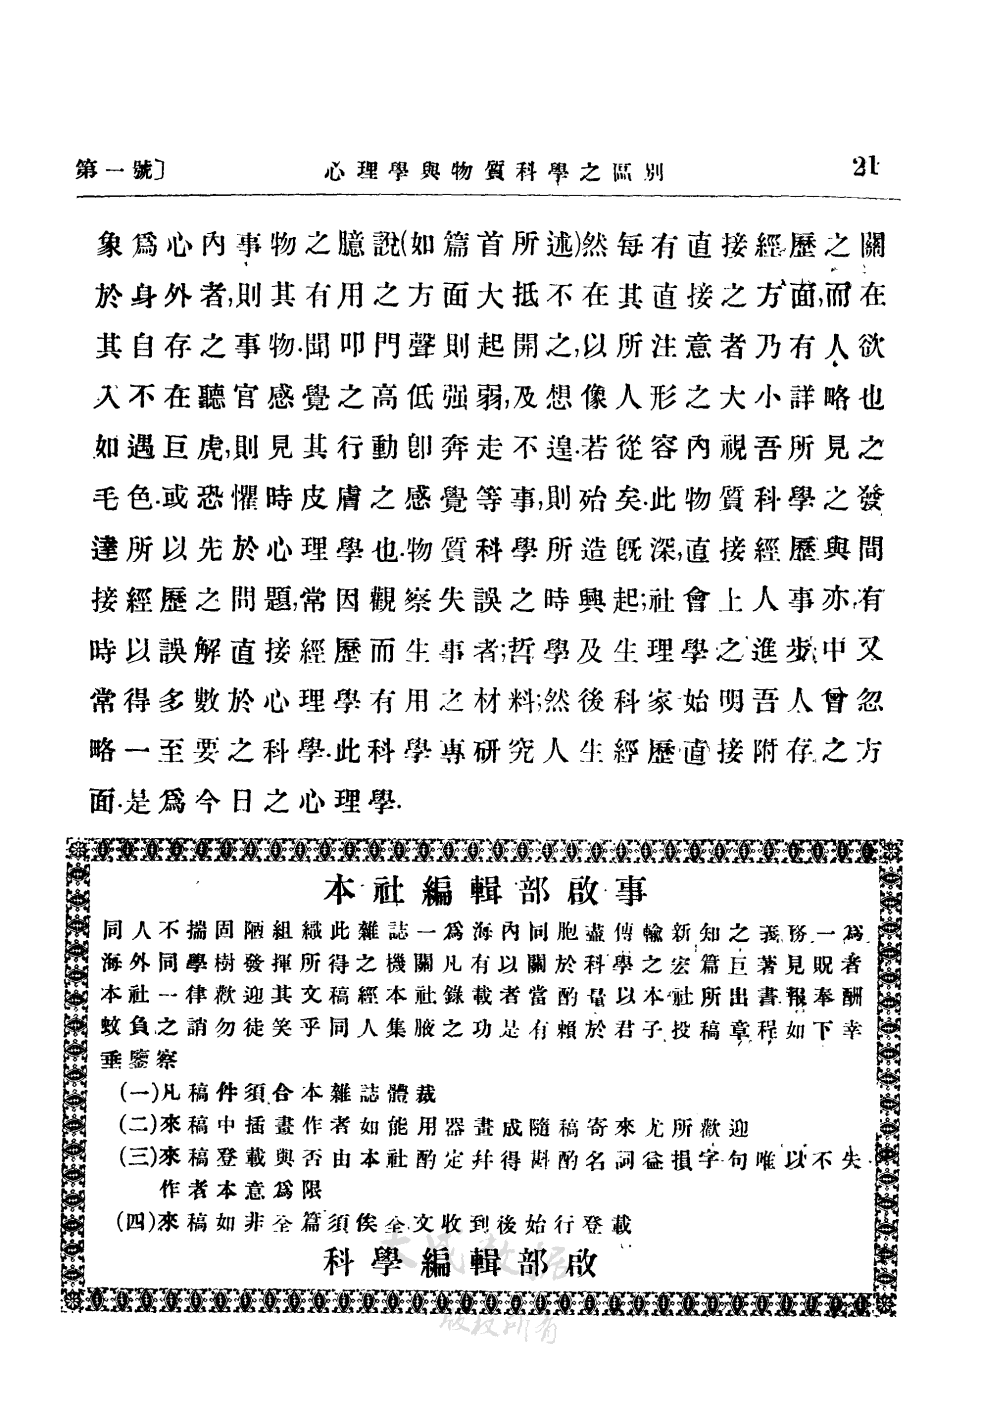 第一號〕 心理學與物質科學之區別 21
象爲心內事物之臆說(如篇首所述)然每有直接經歷之關
於身外者,則其有用之方面大抵不在其直接之方面,而在
其自存之事物.聞叩門聲則起開之,以所注意者乃有人欲
入不在聽官感覺之高低强弱,及想像人形之大小詳略也
如遇巨虎,則見其行動卽奔走不遑.若從容內視吾所見之
毛色.或恐懼時皮膚之感覺等事,則殆矣.此物質科學之發
達所以先於心理學也.物質科學所造旣深,直接經歷與間
接經歷之問題,常因觀察失誤之時興起;社會上人事亦有
時以誤解直接經歷而生事者;哲學及生理學之進步,中又
常得多數於心理學有用之材料;然後科家始明吾人曾忽
略一至要之科學.此科學專研究人生經歷直接附存之方
面.是爲今日之心理學.
本社編輯部啟事
同人不揣固陋組織此雜誌一爲海內同胞盡傳輸新知之義務一爲
海外同學樹發揮所得之機關凡有以關於科學之宏篇巨著見貺者
本社一律歡迎其文稿經本社錄載者當酌量以本社所出書報奉酬
蚊負之誚勿徒笑乎同人集腋之功是有賴於君子投稿章程如下幸
垂鑒察
(一)凡稿件須合本雜誌體裁
(二)來稿中插畫作者如能用器畫成隨稿寄來尤所歡迎
(三)來稿登載與否由本社酌定幷得斟酌名詞益損字句唯以不失
作者本意爲限
(四)來稿如非全篇須俟全文收到後始行登載
科學編輯部啟
版权所有